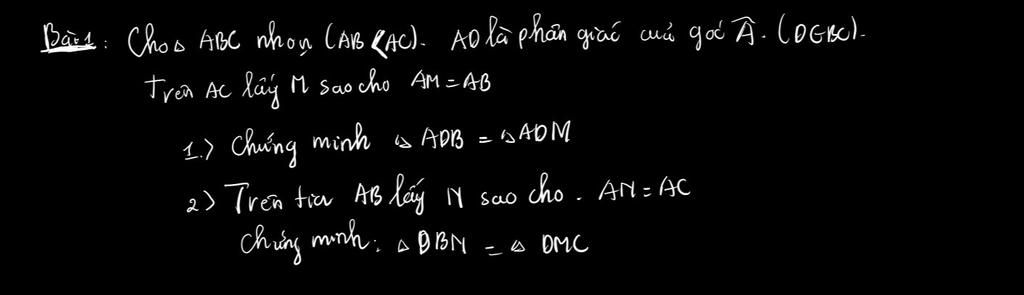 Bài 1: Cho △ ABC nhọn (AB < AC). AD là phân giác của góc Â. (D∈BC).
Trên AC lấy M sao cho AM = AB
1.) Chứng minh △ ADB = △ ADM
2) Trên tia AB lấy N sao cho. AN = AC
Chứng minh: △ DBN = △ DMC